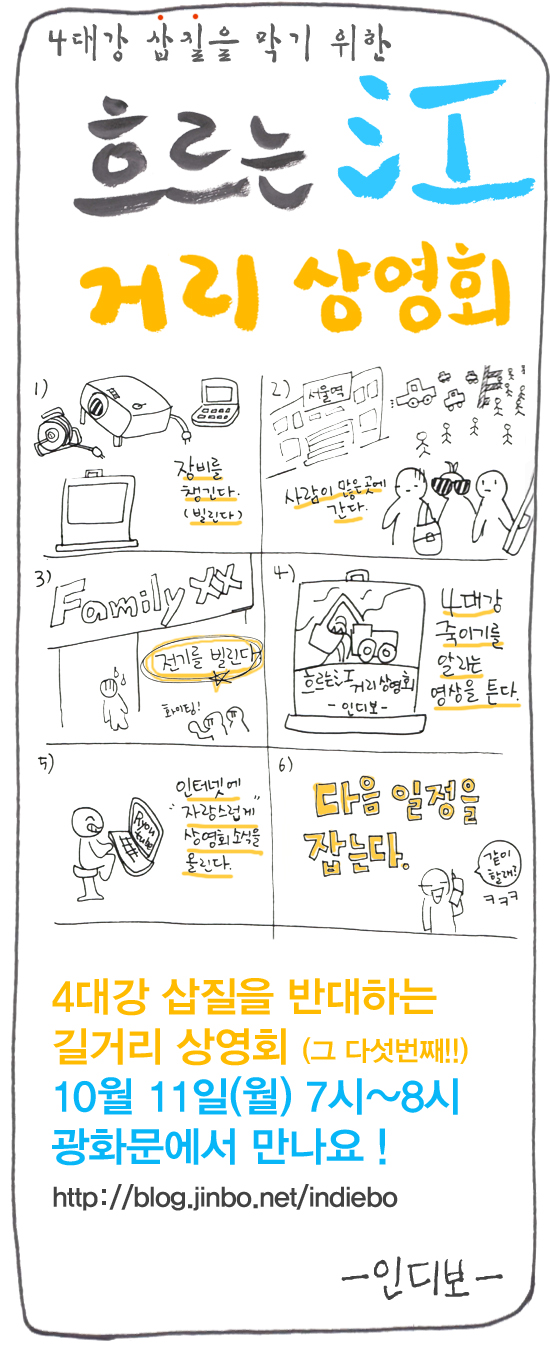 4대강 삽질을 막기 위한
흐르는 江
거리 상영회
1)
장비를
챙긴다.
(빌린다)
2)
서울역
사람이 많은곳에
간다.
3)
Family XX
전기를 빌린다
화이팅!
4)
흐르는江 거리상영회
-인디보-
4대강
죽이기를
알리는
영상을 튼다.
5)
인터넷에
"자랑스럽게"
상영회 소식을
올린다.
Ryou
tube
6)
다음 일정을
잡는다.
같이
할래?
ㅋㅋㅋ
4대강 삽질을 반대하는
길거리 상영회 (그 다섯번째!!)
10월 11일(월) 7시~8시
광화문에서 만나요 !
http://blog.jinbo.net/indiebo
-인디보-